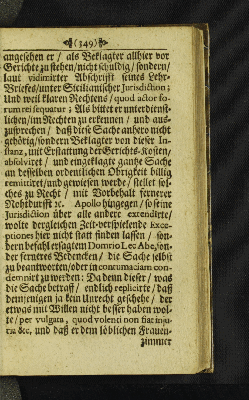 (349)
angesehen er / als Beklagter allhier vor
Gerichte zu stehen / nicht schuldig / sondern /
laut vidimirter Abschrifft seines Lehr-
Briefes / unter Sicilianischer Jurisdiction;
Und weil klaren Rechtens / quod actor fo-
rum rei sequatur; Als bittet er unterdienst-
lichen / im Rechten zu erkennen / und aus-
zusprechen / daß diese Sache anhero nicht
gehörig / sondern Beklagter von dieser In-
stanz, mit Erstattung der Gerichts-Kosten /
absolviret / und eingeklagte gantze Sache
an desselben ordentlichen Obrigkeit billig
remittiret / und gewiesen werde / stellet sol-
ches zu Recht / mit Vorbehalt fernerer
Nohtdurfft ꝛc. Apollo hingegen / so seine
Jurisdiction über alle andere extendirte /
wolte dergleichen Zeit-verspielende Exce-
ptiones hier nicht statt finden lassen / son-
dern befahl ersagtem Domrio Lec Abe, son-
der ferneres Bedencken / die Sache selbst
zu beantworten / oder in contumaciam con-
demnirt zu werden: Da denn dieser / was
die Sache betraff / endlich replicirte / daß
demjenigen ja kein Unrecht geschehe / der
etwas mit Willen nicht besser haben wol-
te / per vulgata, quod volenti non fiat inju-
ria &c, und daß er dem löblichen Frauen-
zimmer